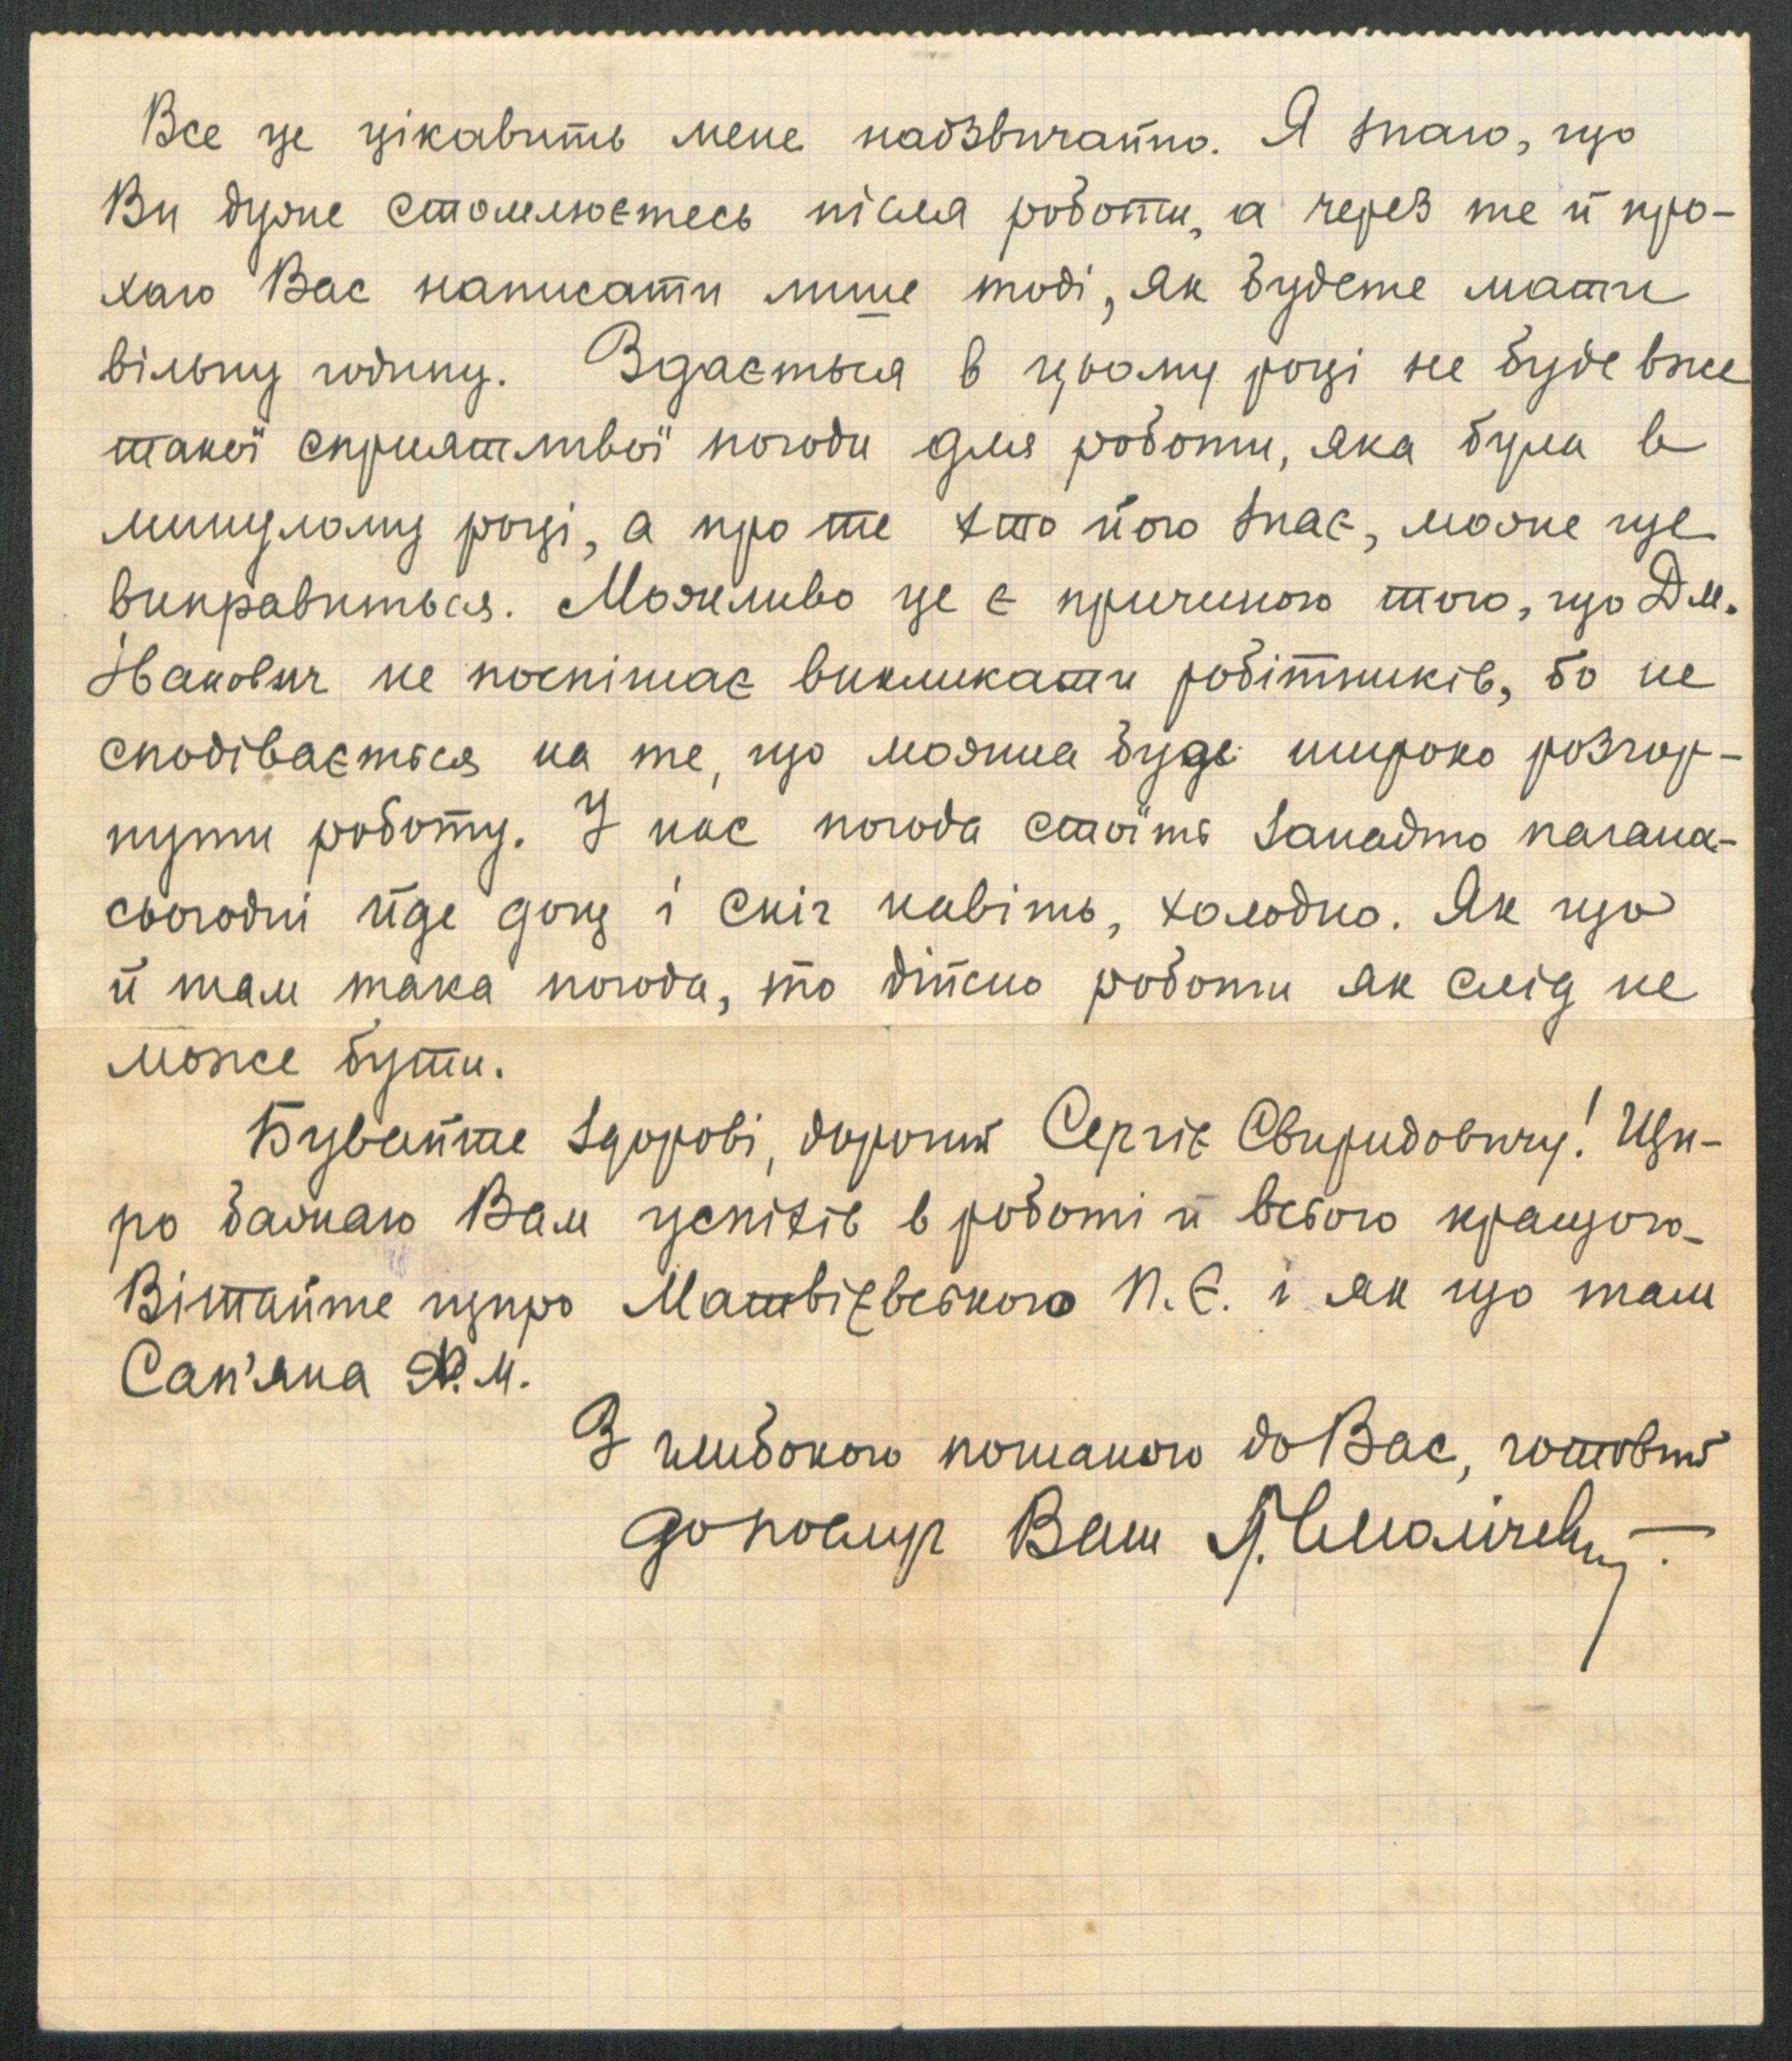 Все це цікавить мене надзвичайно. Я знаю, що
Ви дуже стомлюєтесь після роботи, а через те й про-
хаю Вас написати лише тоді, як будете мати
вільну годину. Здається в цьому році не буде вже
такої сприятливої погоди для роботи, яка була в
минулому році, а про те хто його знає, може ще
виправиться. Можливо це є причиною того, що Дм.
Іванович не поспішає викликати робітників, бо не
сподівається на те, що можна буде широко розгор-
нути роботу. У нас погода стоїть занадто погана-
сьогодні йде дощ і сніг навіть, холодно. Як що
й там така погода, то дійсно роботи як слід не
може бути.
Бувайте здорові, дорогий Сергіє Свиридовичу! Щи-
ро бажаю Вам успіхів в роботі й всього кращого.
Вітайте щиро Матвієвського П.Є. і як що там
Сап'яна М.
З глибокою пошаною до Вас, готовий
до послуг Ваш